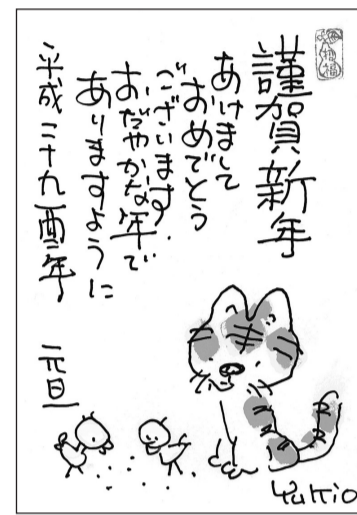 謹賀新年
あけまして
おめでとう
ございます.
おだやかな年で
ありますように
平成二十九酉年
元旦
Yukio